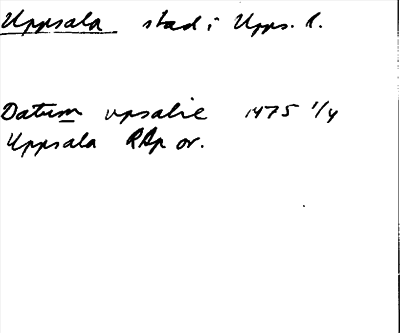 Uppsala stad i Upps. l.
Datum vpsalie 1475 1/4
Uppsala RAp or.